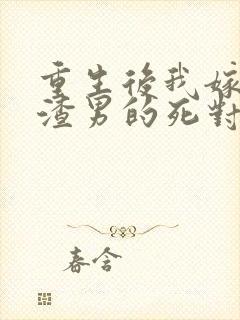 重生後我嫁
渣男的死對
春含